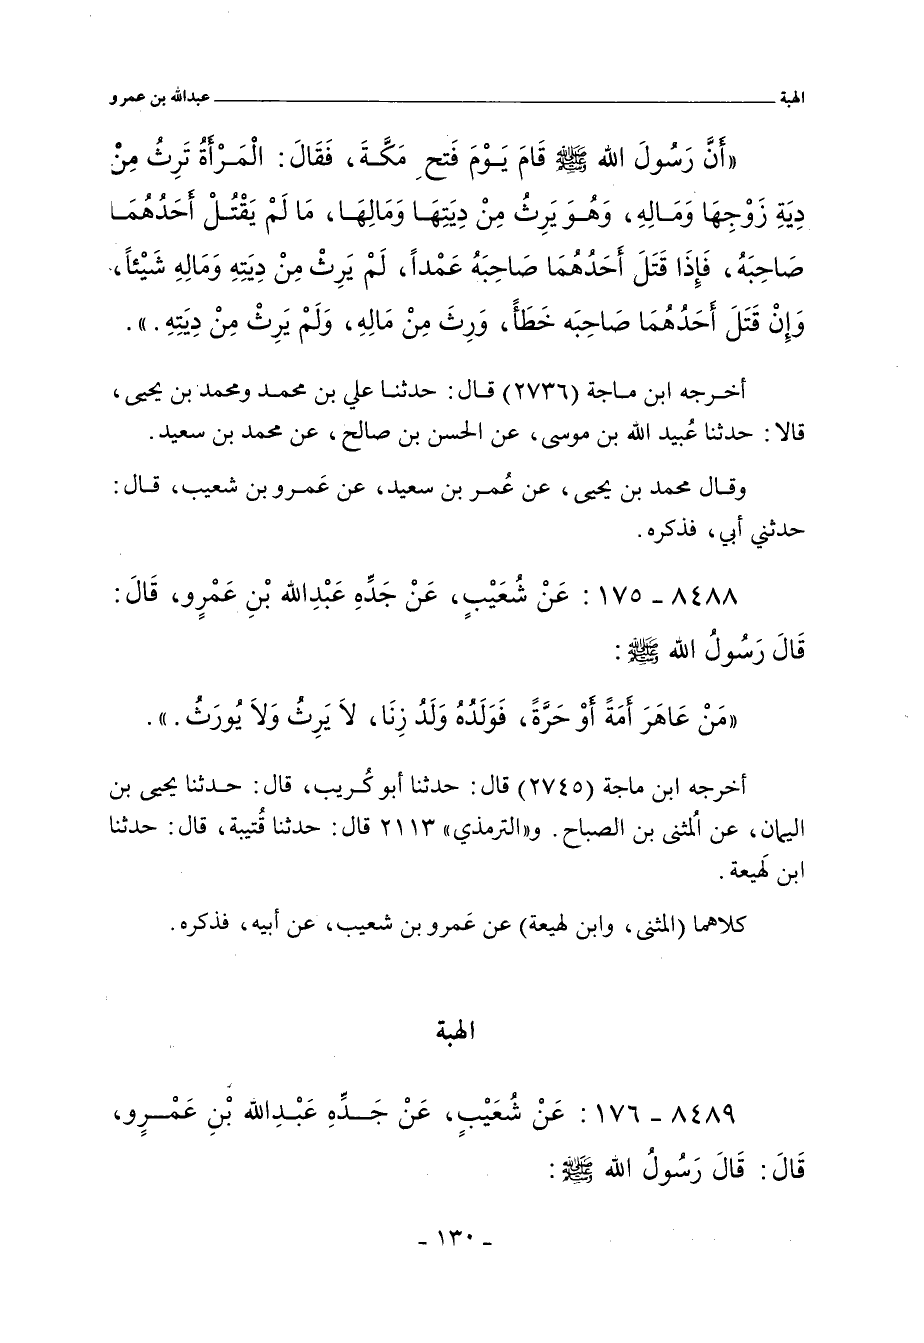 الهبة عبدالله بن عمرو
«أَنَّ رَسُولَ الله ﷺ قَامَ يَوْمَ فَتْحِ مَكَّةَ، فَقَالَ: الْمَرْأَةُ تَرِثُ مِنْ
دِيَةِ زَوْجِهَا وَمَالِهِ، وَهُوَ يَرِثُ مِنْ دِيَتِهَا وَمَالِهَا، مَا لَمْ يَقْتُلْ أَحَدُهُمَا
صَاحِبَهُ، فَإِذَا قَتَلَ أَحَدُهُمَا صَاحِبَهُ عَمْداً، لَمْ يَرِثْ مِنْ دِيَتِهِ وَمَالِهِ شَيْئاً،
وَإِنْ قَتَلَ أَحَدُهُمَا صَاحِبَه خَطَأً، وَرِثَ مِنْ مَالِهِ، وَلَمْ يَرِثْ مِنْ دِيَتِهِ.».
أخرجه ابن ماجة (٢٧٣٦) قال: حدثنا علي بن محمد ومحمد بن يحيى،
قالا: حدثنا عُبيد الله بن موسى، عن الحسن بن صالح، عن محمد بن سعيد.
وقال محمد بن يحيى، عن عُمر بن سعيد، عن عَمرو بن شعيب، قال:
حدثني أبي، فذكره.
٨٤٨٨ - ١٧٥ : عَنْ شُعَيْبٍ، عَنْ جَدِّهِ عَبْدِالله بْنِ عَمْرٍو، قَالَ:
قَالَ رَسُولُ الله ﷺ:
«مَنْ عَاهَرَ أَمَةً أَوْ حَرَّةً، فَوَلَدُهُ وَلَدُ زِنَا، لاَ يَرِثُ وَلاَ يُورَثُ.».
أخرجه ابن ماجة (٢٧٤٥) قال: حدثنا أبو كُريب، قال: حدثنا يحيى بن
اليمان، عن المُثنى بن الصباح. و«الترمذي» ٢١١٣ قال: حدثنا قُتيبة، قال: حدثنا
ابن لَهيعة.
كلاهما (المثنى، وابن لهيعة) عن عَمرو بن شعيب، عن أبيه، فذكره.
الهبة
٨٤٨٩ - ١٧٦ : عَنْ شُعَيْبٍ، عَنْ جَدِّهِ عَبْدِالله بْنِ عَمْرٍو،
قَالَ: قَالَ رَسُولُ الله ﷺ:
- ١٣٠ -